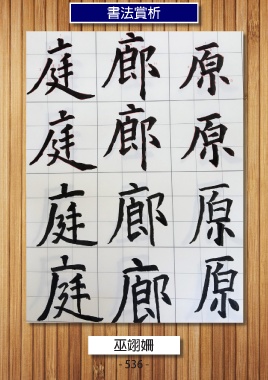 書法賞析
庭廊原
庭廊原
庭廊原
庭廊原
巫翊姍
- 536 -